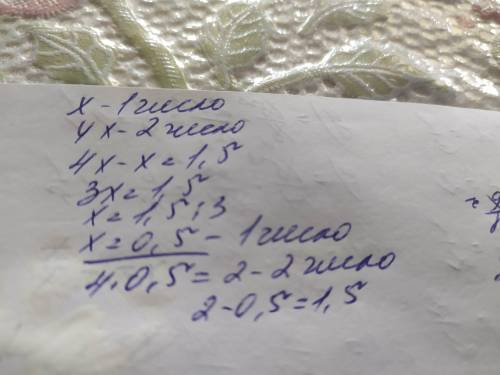 x - 1 число
4x - 2 число
4x - x = 1,5
3x = 1,5
x = 1,5 : 3
x = 0,5 - 1 число
4 · 0,5 = 2 - 2 число
2 - 0,5 = 1,5